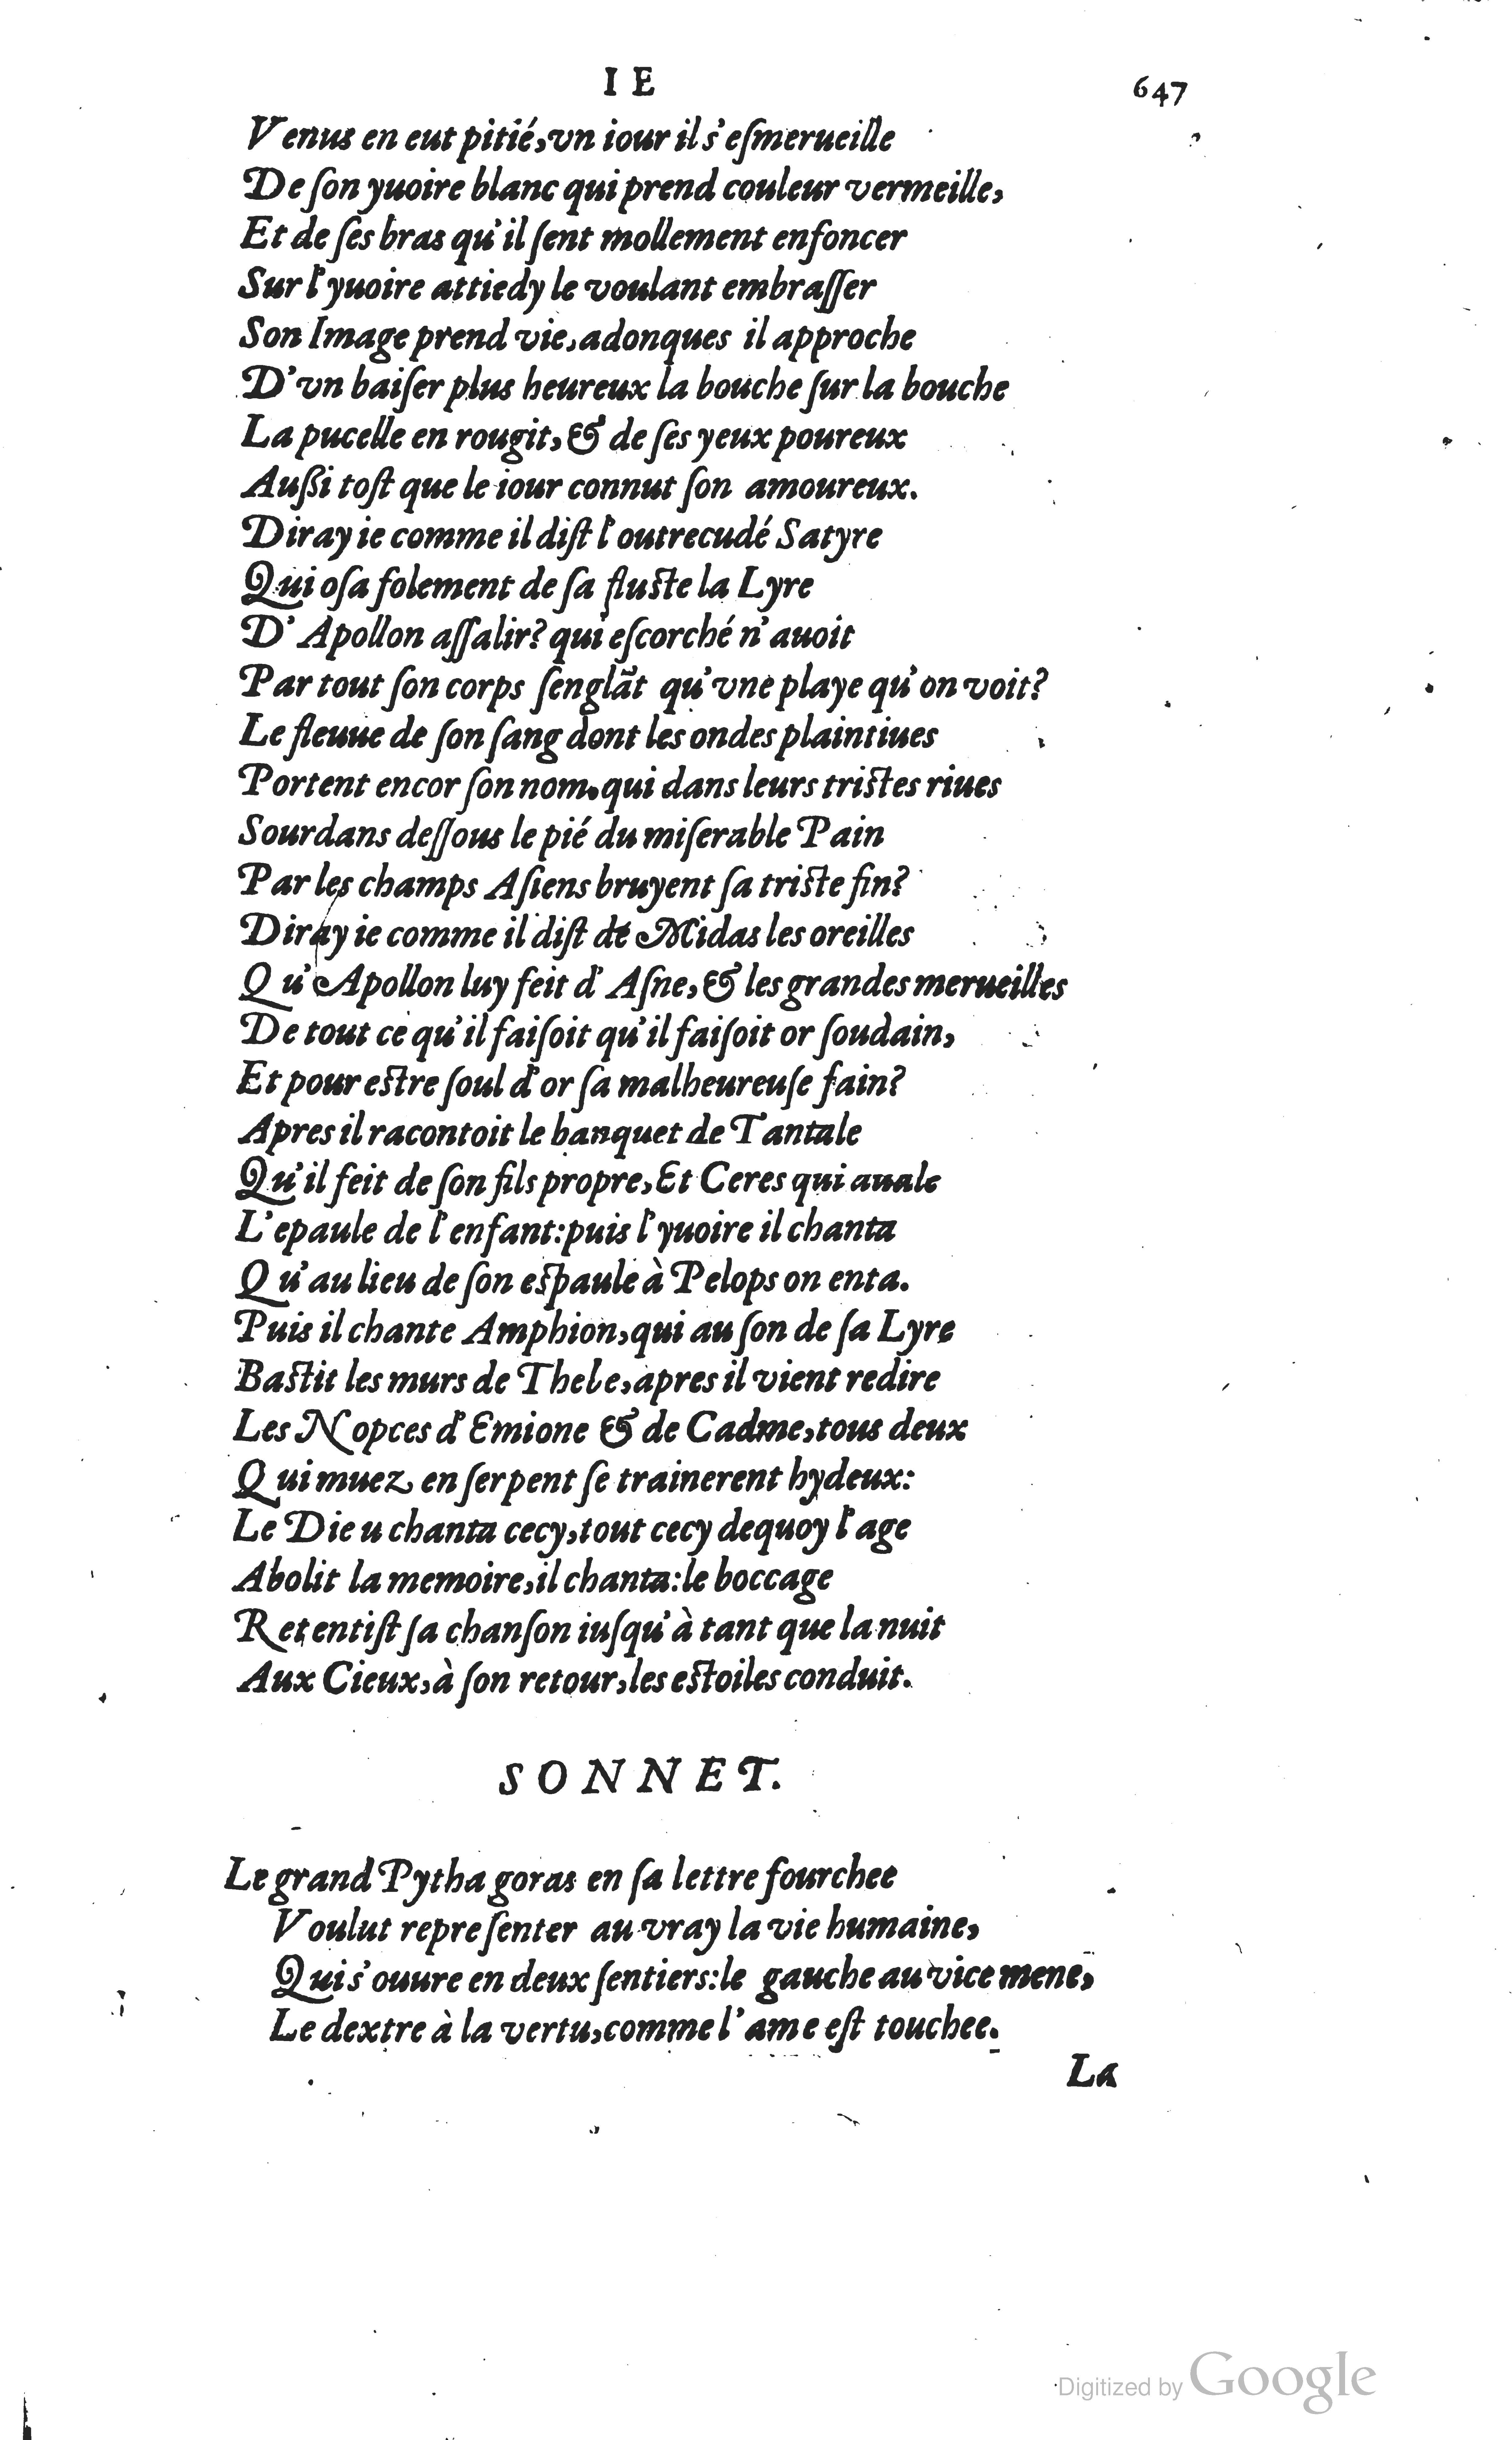 I E 647
Venus en eut pitié, vn iour il s'eſmerueille
De ſon yuoire blanc qui prend couleur vermeille,
Et de ſes bras qu'il ſent mollement enfoncer
Sur l'yuoire attiedy le voulant embraſſer
Son Image prend vie, adonques il approche
D'vn baiſer plus heureux la bouche ſur la bouche
La pucelle en rougit, & de ſes yeux poureux
Außi toſt que le iour connut ſon amoureux.
Diray ie comme il diſt l'outrecudé Satyre
Qui oſa folement de ſa fluſte la Lyre
D'Apollon aſſalir? qui eſcorché n'auoit
Par tout ſon corps ſenglãt qu'vne playe qu'on voit?
Le fleuue de ſon ſang dont les ondes plaintiues
Portent encor ſon nom, qui dans leurs triſtes riues
Sourdans deſſous le pié du miſerable Pain
Par les champs Aſiens bruyent ſa triſte fin?
Diray ie comme il diſt de Midas les oreilles
Qu'Apollon luy feit d'Aſne, & les grandes merueilles
De tout ce qu'il faiſoit qu'il faiſoit or ſoudain,
Et pour eſtre ſoul d'or ſa malheureuſe fain?
Apres il racontoit le banquet de Tantale
Qu'il feit de ſon fils propre, Et Ceres qui auale
L'epaule de l'enfant: puis l'yuoire il chanta
Qu'au lieu de ſon eſpaule à Pelops on enta.
Puis il chante Amphion, qui au ſon de ſa Lyre
Baſtit les murs de Thebe, apres il vient redire
Les Nopces d'Emione & de Cadme, tous deux
Qui muez en ſerpent ſe trainerent hydeux:
Le Dieu chanta cecy, tout cecy dequoy l'age
Abolit la memoire, il chanta: le boccage
Retentiſt ſa chanſon iuſqu'à tant que la nuit
Aux Cieux, à ſon retour, les eſtoiles conduit.
SONNET.
Le grand Pythagoras en ſa lettre fourchee
Voulut repreſenter au vray la vie humaine,
Qui s'ouure en deux ſentiers: le gauche au vice mene,
Le dextre à la vertu, comme l'ame eſt touchee.
La
Digitized by Google